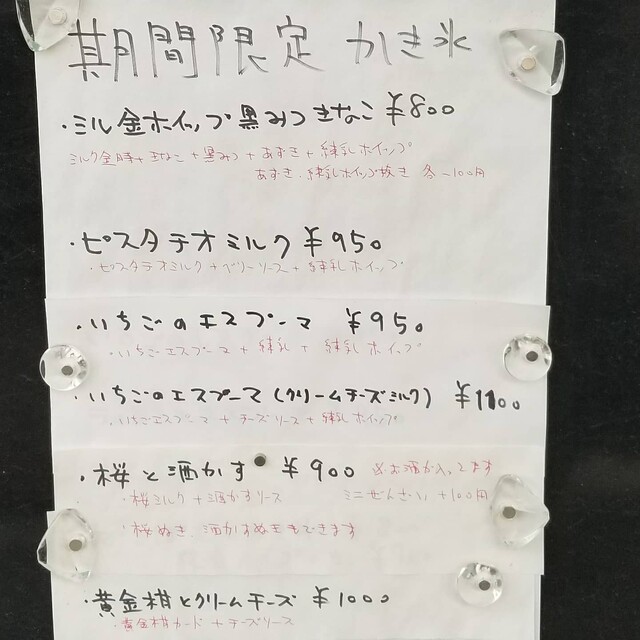 期間限定 かき氷
・ミルク金ホイップ黒みつきなこ ¥800
ミルク金時+きなこ+黒みつ+あずき+練乳ホイップ
あずき、練乳ホイップ抜き 各-100円
・ピスタチオミルク ¥950
・ピスタチオミルク+ベリーソース+練乳ホイップ
・いちごのエスプーマ ¥950
・いちごエスプーマ+練乳+練乳ホイップ
・いちごのエスプーマ(クリームチーズミルク) ¥1100
・いちごエスプーマ+チーズソース+練乳ホイップ
・桜と酒かす ¥900 ※お酒が入ってます
・桜ミルク+酒かすソース ミニぜんざい +100円
・桜ぬき、酒かすぬきもできます
・黄金柑とクリームチーズ ¥1000
・黄金柑カード+チーズソース